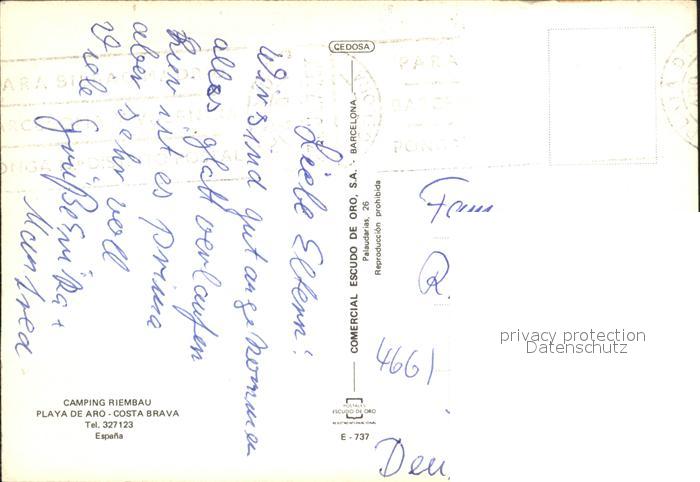 Liebe Eltern!
Wir sind gut angekommen
alles glatt verlaufen
hier ist es prima
aber sehr voll
Viele Grüße
Manfred
CEDOSA
COMERCIAL ESCUDO DE ORO, S.A. - BARCELONA
Palaudarias, 26
Reproducción prohibida
POSTALES
ESCUDO DE ORO
E - 737
CAMPING RIEMBAU
PLAYA DE ARO - COSTA BRAVA
Tel. 327123
España
Fam
R.
4661
Deu
privacy protection
Datenschutz